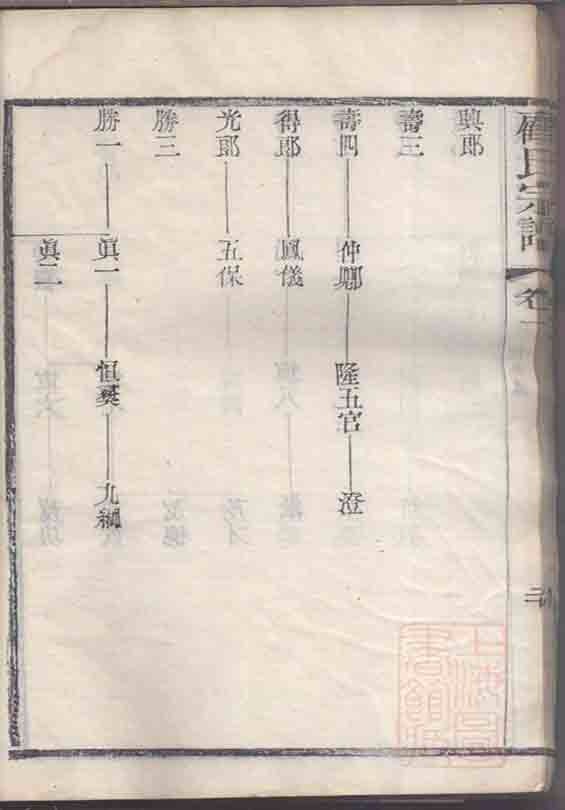 氏宗譜
卷一
興郎
壽三
壽四 仲郷 隆五官 澄
得郎 鳳儀
光郎 五保
勝三
勝一 眞一 恒 九
眞二
上海圖書館藏